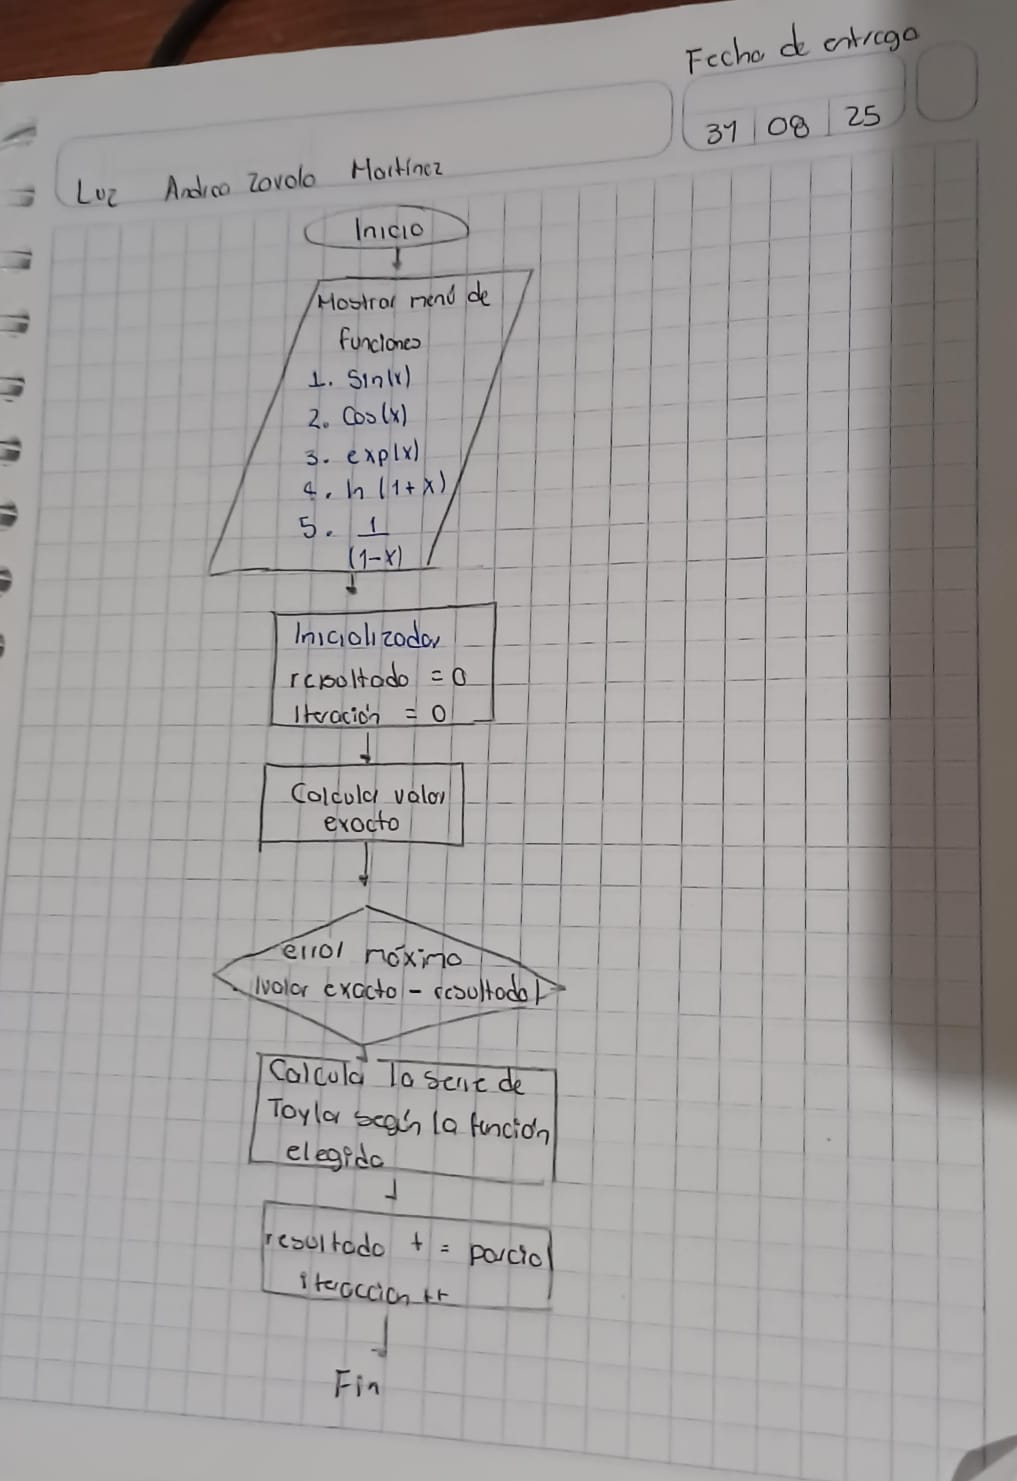 Fecha de entrega
31 | 08 | 25
Luz Andrea Zavala Martínez
Inicio
Mostrar menú de
funciones
1. Sin(x)
2. Cos(x)
3. exp(x)
4. ln (1+x)
5. 1
(1-x)
Inicializador
resultado = 0
Iteración = 0
Calcular valor
exacto
error máximo
|valor exacto - resultado|
Calcula la serie de
Taylor según la función
elegida
resultado += parcial
iteraccion ++
Fin